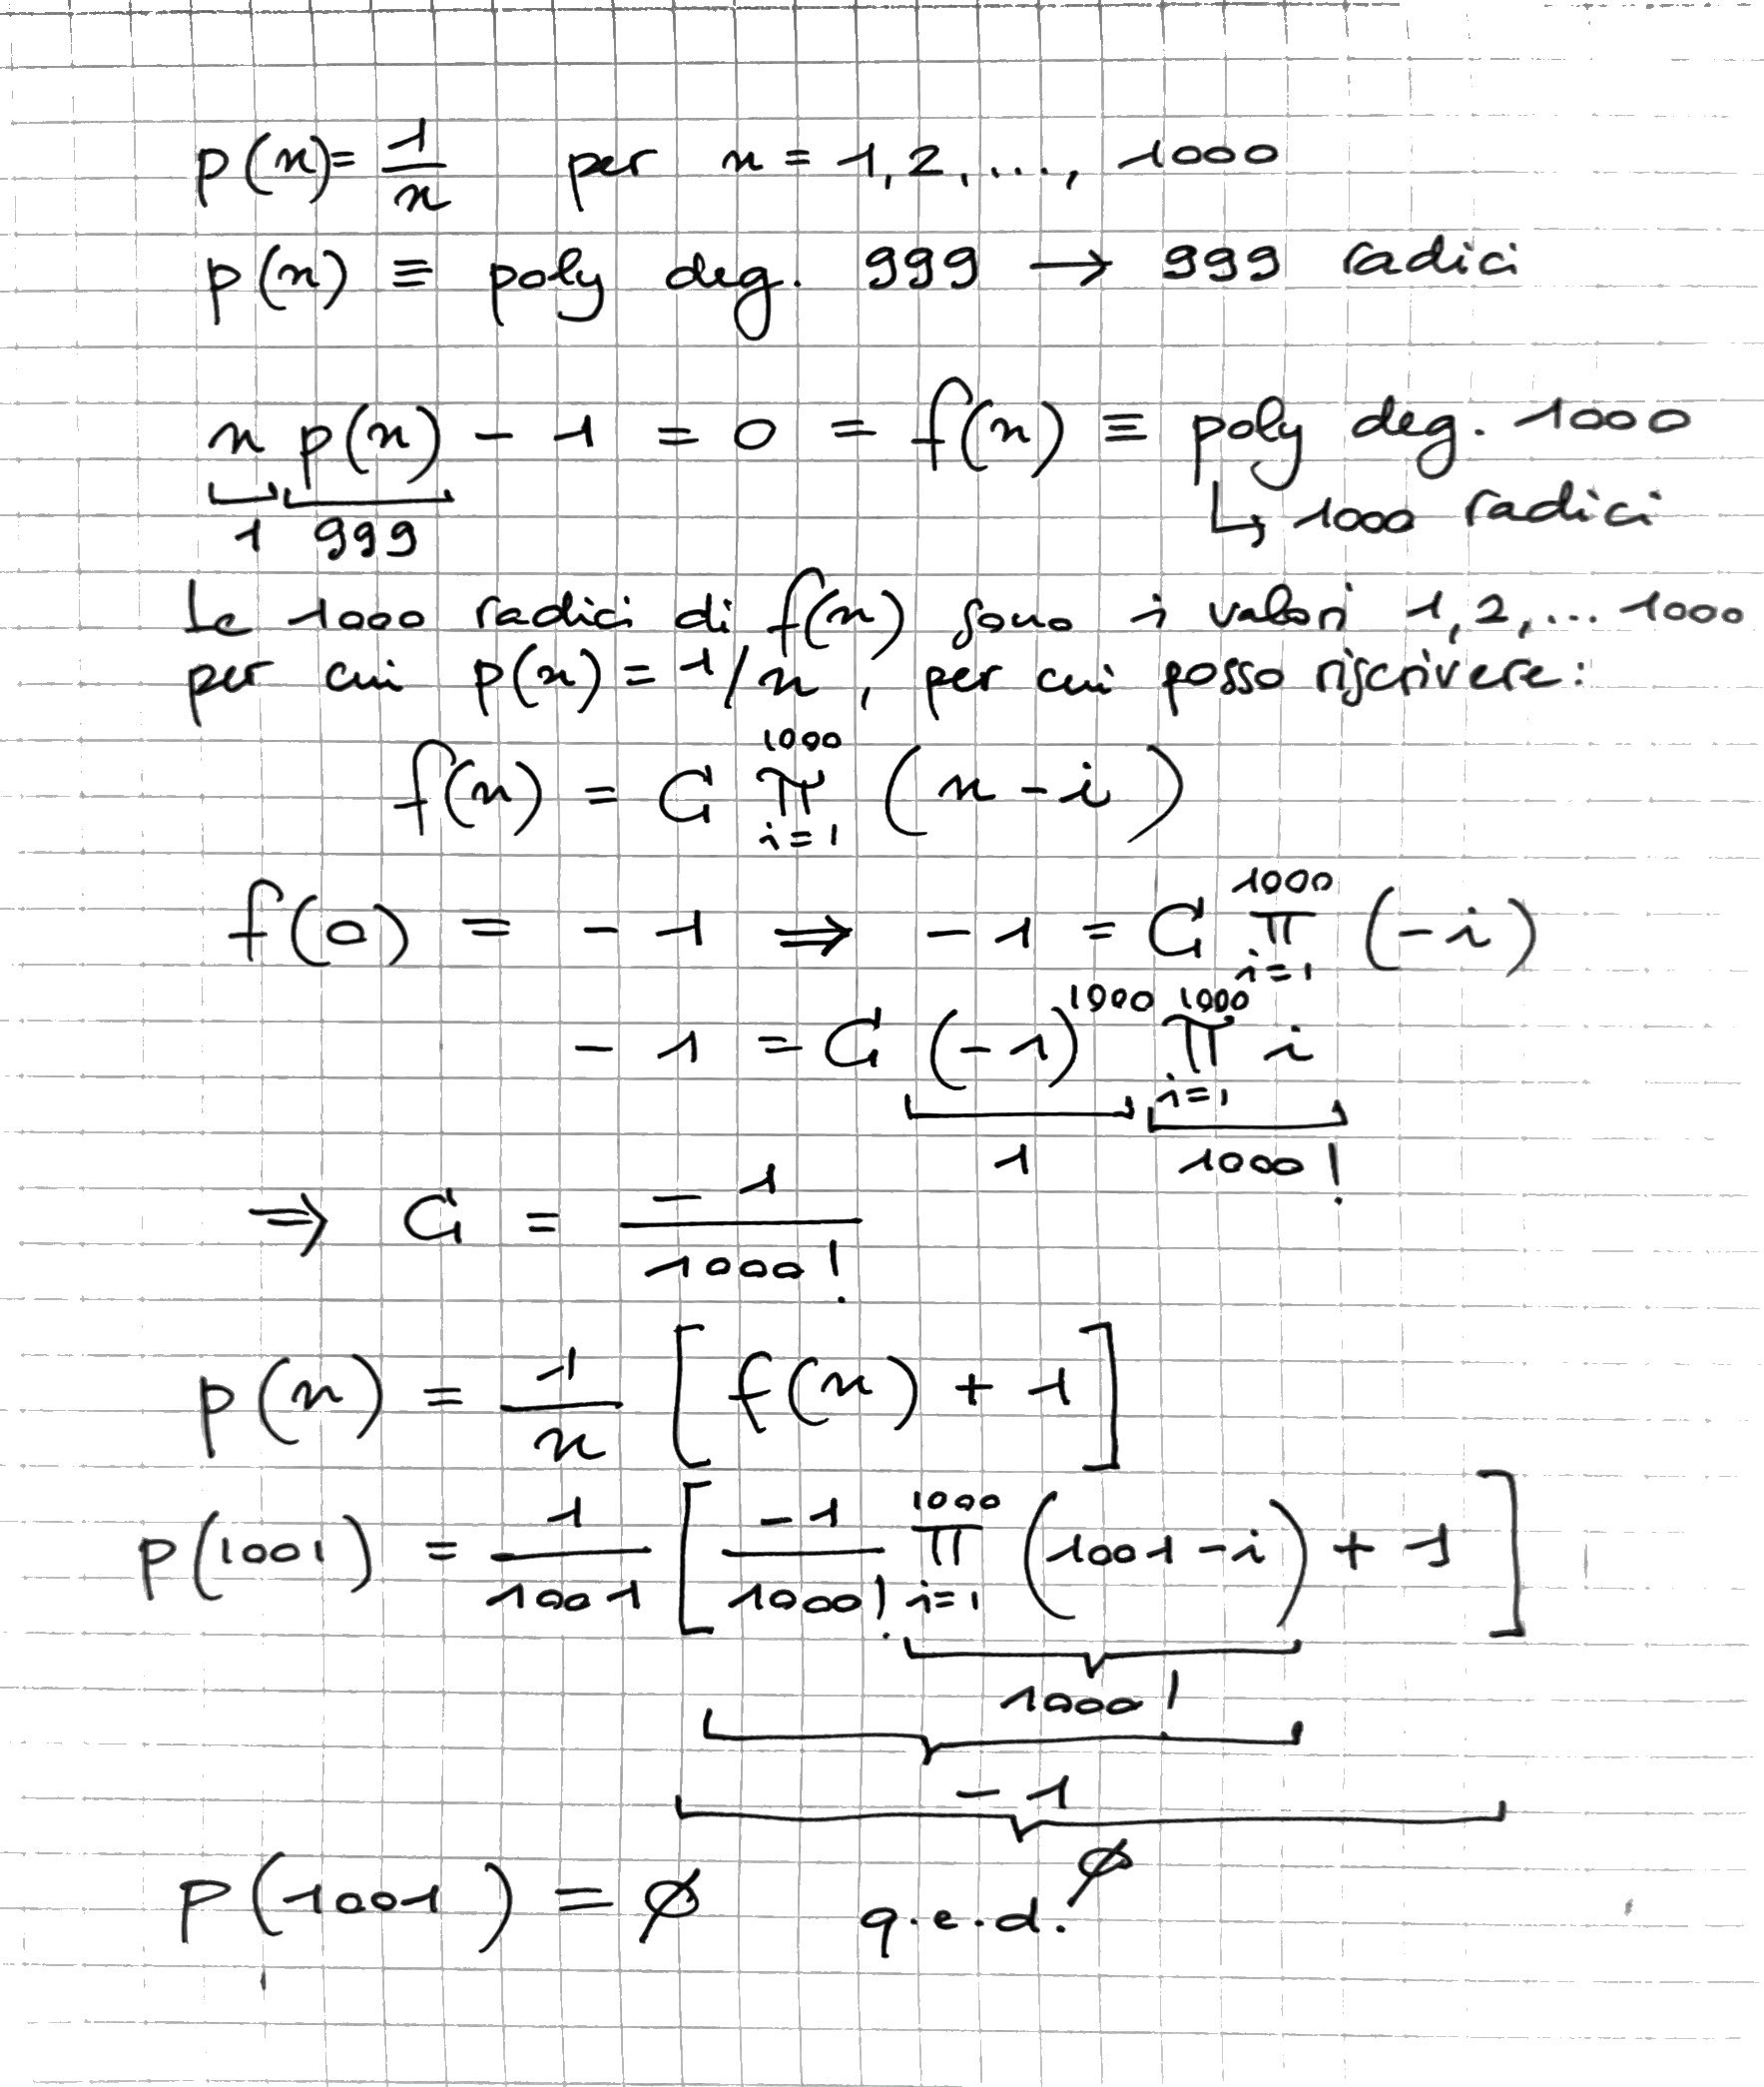 p(n) = 1/n per n = 1, 2, ..., 1000
p(n) ≡ poly deg. 999 → 999 radici
n p(n) - 1 = 0 = f(n) ≡ poly deg. 1000
1 999 ↳ 1000 radici
Le 1000 radici di f(n) sono i valori 1, 2, ... 1000
per cui p(n) = 1/n, per cui posso riscrivere:
f(n) = C ∏_{i=1}^{1000} (n - i)
f(0) = -1 ⇒ -1 = C ∏_{i=1}^{1000} (-i)
-1 = C (-1)^{1000} ∏_{i=1}^{1000} i
1 1000!
⇒ C = -1/1000!
p(n) = 1/n [f(n) + 1]
p(1001) = 1/1001 [-1/1000! ∏_{i=1}^{1000} (1001 - i) + 1]
1000!
-1
∅
p(1001) = ∅ q.e.d.